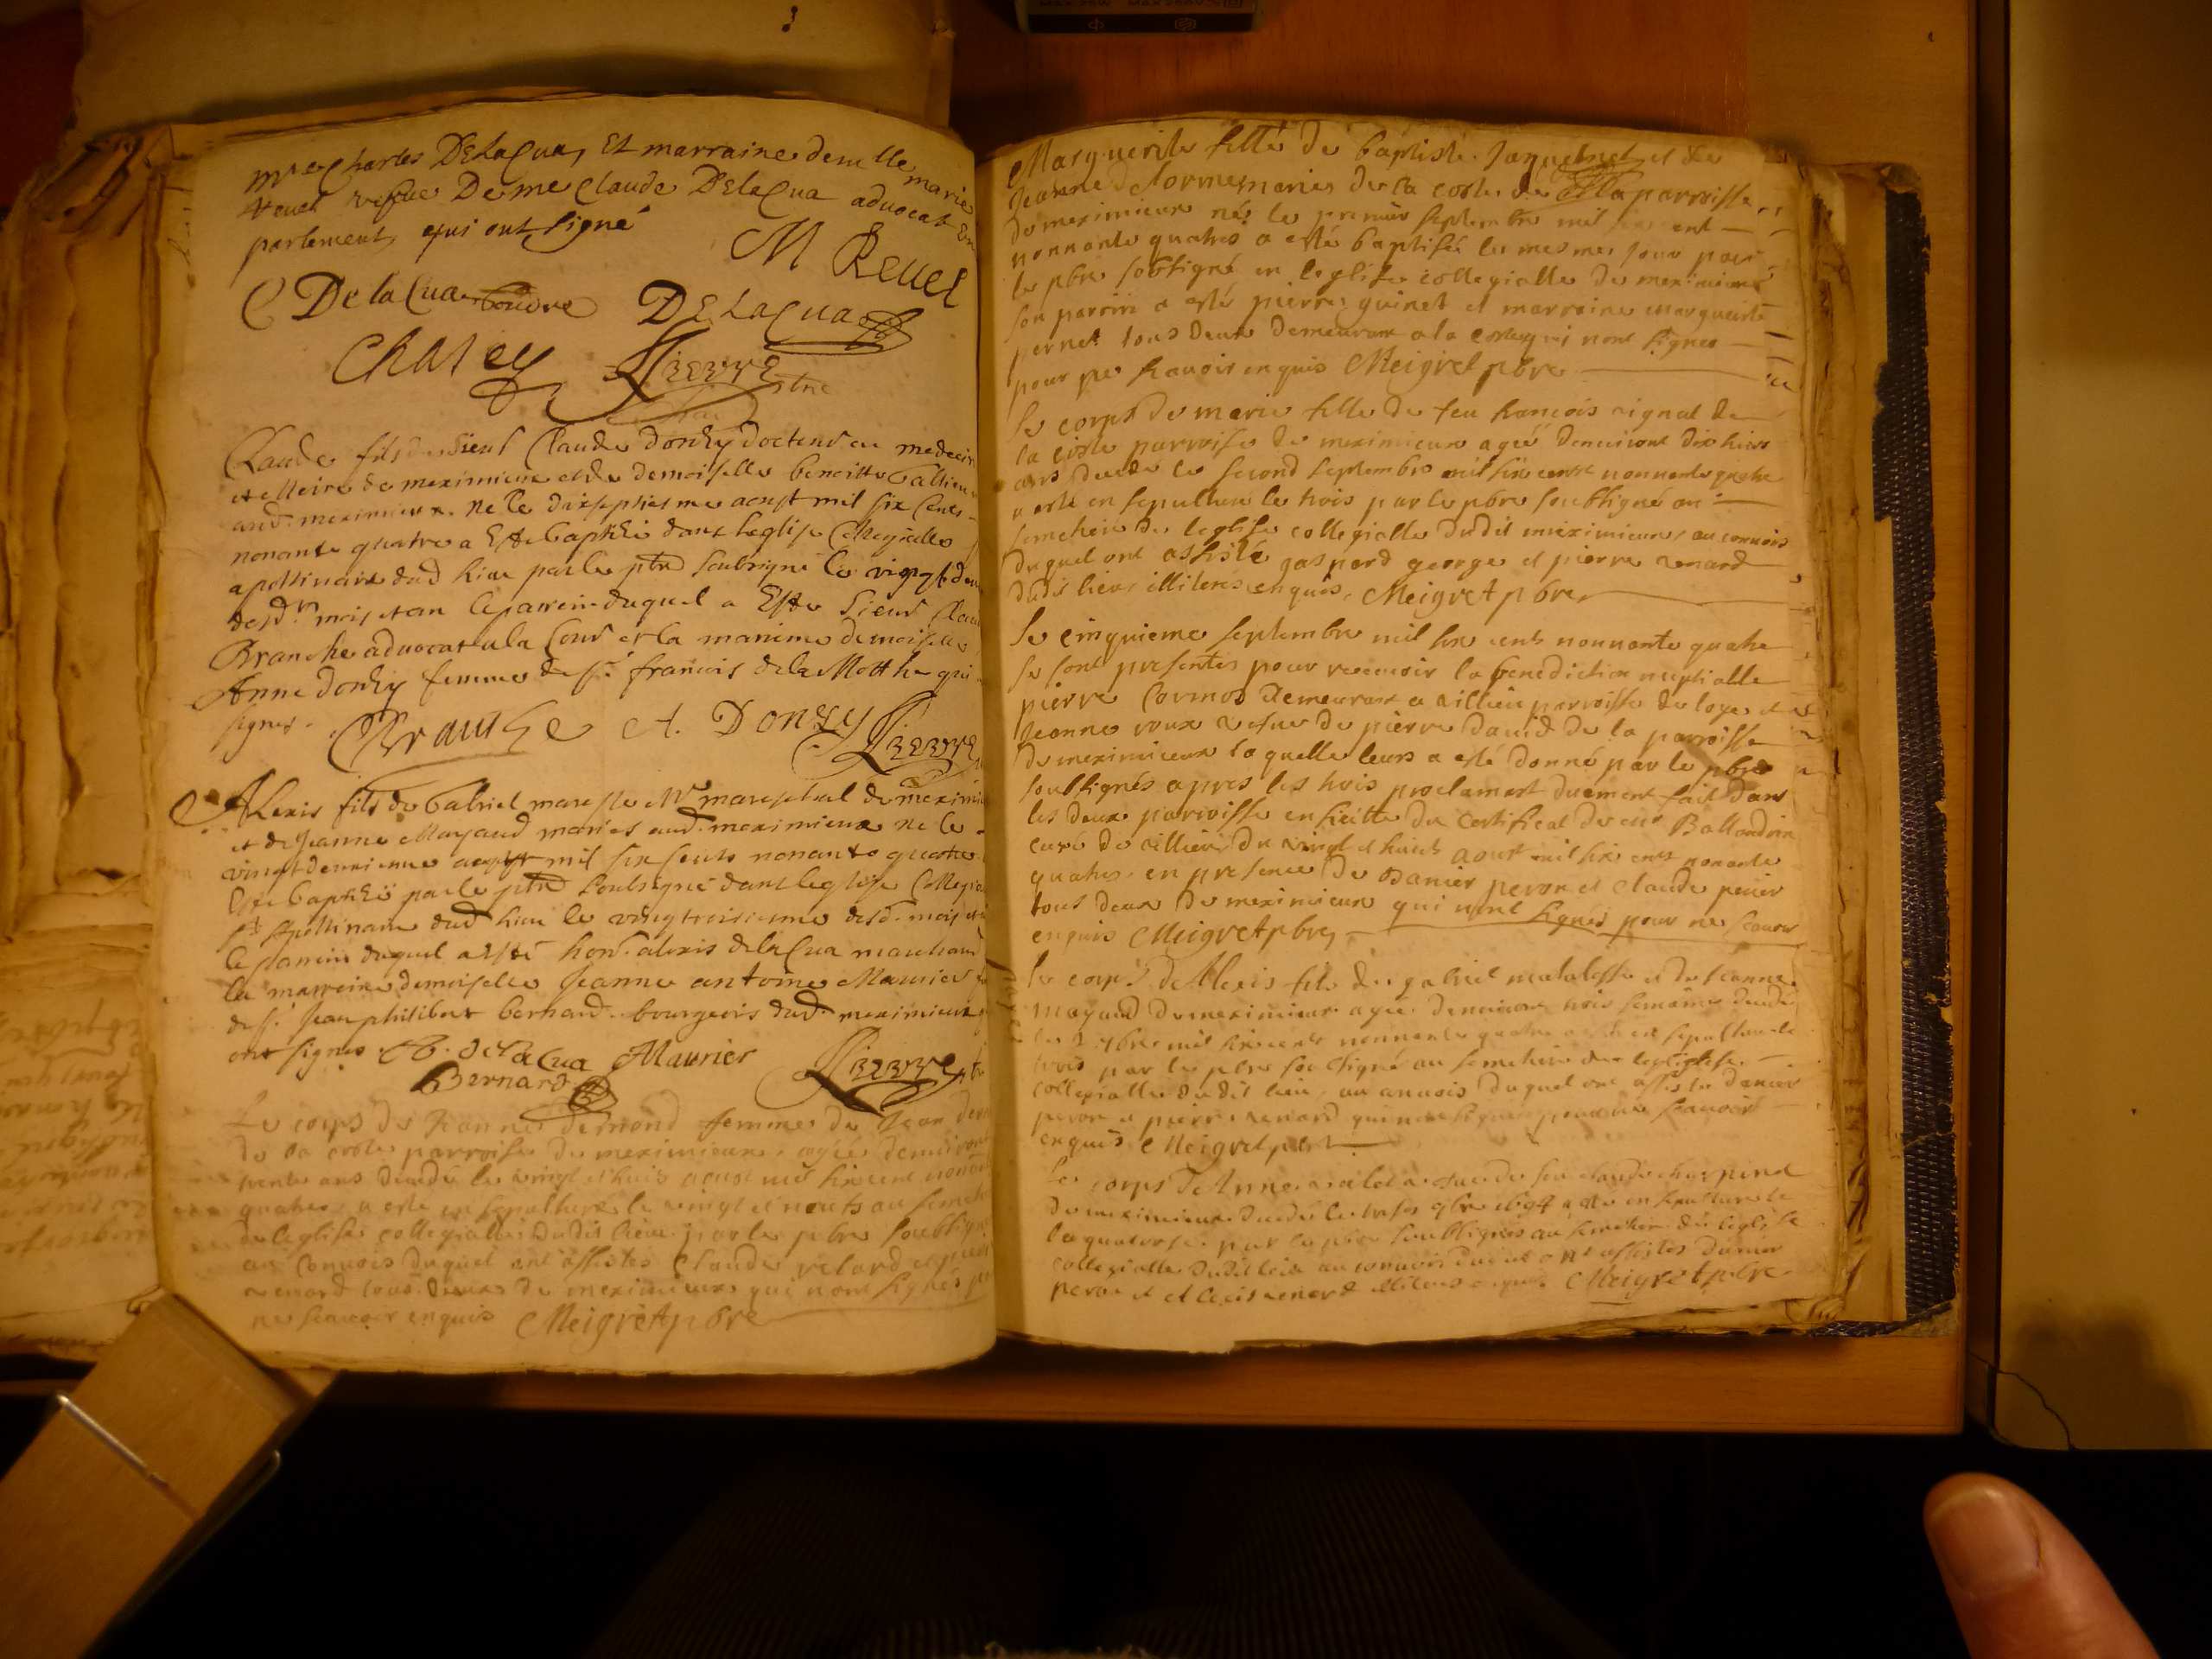 mre Charles DELaCua, Et marraine demlle marie
Reuel vefue De me Claude DELaCua aduocat En
parlement, qui ont signé
M Reuel
C De laCua DELaCua
Chaley
Claude fils du Sieur Claude Donzy docteur en medecin
de meximieux et de demoiselle benoitte
aud. meximieux ne le dixseptiesme aoust mil six Cents
nonante quatre a Esté baptizé dans leglise Collegialle
apollinaire dud lieu par le ptre soubsigné le vingt deu
desd. mois et an le parrein duquel a Esté Sieur Clau
Branche aduocat a la Cour et la marrine demoiselle
Anne donzy femme de sr. francois de la Motthe qui
signes.
Branche A. Donzy
Alexis fils de Gabriel mareschal de meximi
et de Jeanne Mayaud maries aud. meximieux ne le
vingt deuxieme aoust mil six Cents nonante quatre
Esté baptizé par le ptre soubsigné dans leglise Collegia
st Apollinaire dud lieu le vingt troisiesme desd. mois et
le parrein duquel a esté hon. alexis delaCua marchand
la marreine demoiselle Jeanne antoine Maurier
de sr. Jean philibert bernard bourgeois dud. meximieux
ont signes. A. delaCua Maurier
Bernard
Le corps de Jeanne femme de Jean
de la coste parroisse de meximieux agée denuiron
trente ans decedé le vingt et huit aoust mil six cent nonan
quatre a esté en sepulture le vingt et neuf au semet
de leglise collegialle dudit lieu par le pbre soubsign
au conuois duquel ont assistes Claude relard et pierr
renard tous deux de meximieux qui nont signés p
ne scauoir enquis Meigret pbre
Marguerite fille de baptiste Janquenet et de
Jeanne maries de la coste de la parroisse
de meximieux née le premier septembre mil six cent
nonnante quatre a esté baptisée le mesme jour par
le pbre soubsigné en leglise collegialle de meximieux
son parrin a esté pierre guinet et marraine marguerite
pernet tous deux demeurant a la coste qui nont signes
pour ne scauoir enquis Meigret pbre
Le corps de marie fille de feu francois rignal de
la coste parroisse de meximieux agée denuiront dix huict
ans decedé le second septembre mil six cent nonnante quatre
a esté en sepulture le trois par le pbre soubsigné au
semetiere de leglise collegialle dudit meximieux au conuois
duquel ont assisté gaspard george et pierre renard
dudit lieu illiteres enquis, Meigret pbre
Le cinquieme septembre mil six cents nonnante quatre
se sont presentes pour receuoir la benediction nuptialle
pierre Cormos demeurant a villieu parroisse de loye et
Jeanne roux vefue de pierre dauid de la parroisse
de meximieux laquelle leurs a esté donné par le pbre
soubsignés apres les trois proclamat duement fait dans
les deux parroisse en suitte du certificat de mr Ballandrin
curé de villieu du vingt et huict aout mil six cents nonante
quatre, en presence de Danier peron et claude perier
tous deux de meximieux qui nont signés pour ne scauoir
enquis Meigret pbre,
Le corps de Alexis fils de gabriel et de Jeanne
mayaud de meximieux agée denuiront trois semaines decedé
le 2 7bre mil six cents nonnante quatre a esté en sepulture le
trois par le pbre soubsigné au semetiere de leglise
collegialle dudit lieu, au conuois duquel ont assisté danier
peron et pierre renard qui nont signes pour ne scauoir
enquis Meigret pbre
Le corps de Anne vefue de feu claude
de meximieux decedé le 7bre 1694 a esté en sepulture le
quatorse par le pbre soubsignés au semetiere de leglise
collegialle dudit lieu au conuois duquel ont assistes danier
peron et alexis renard illiteres enquis Meigret pbre